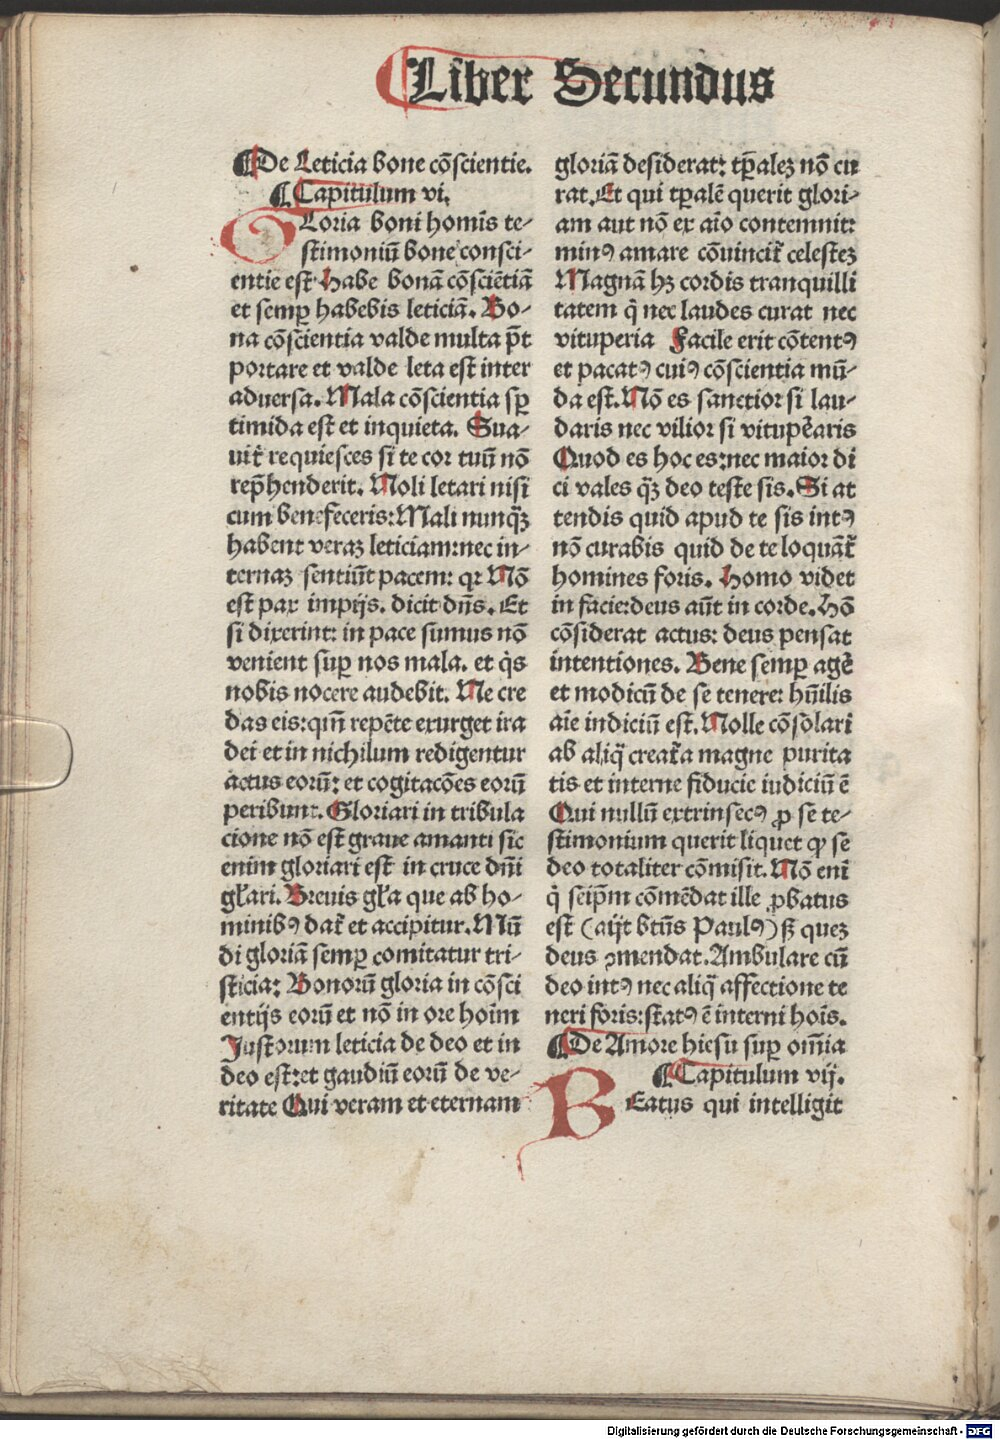 Liber Secundus
¶De Leticia bone cõscientie.
¶Capitulum vi.
GLoria boni homĩs te-
stimoniũ bone consci-
entie est Habe bonã cõsciẽtiã
et semꝑ habebis leticiã. Bo-
na cõscientia valde multa p̃t
portare et valde leta est inter
aduersa. Mala cõscientia sꝑ
timida est et inquieta. Sua-
uit᷑ requiesces si te cor tuũ nõ
rep̃henderit. Noli letari nisi
cum benefeceris: Mali nunq̃ꝫ
habent veraꝫ leticiam: nec in-
ternaꝫ sentiũt pacem: qꝛ Nõ
est pax impijs. dicit dñs. Et
si dixerint: in pace sumus nõ
venient suꝑ nos mala. et q̇s
nobis nocere audebit. Ne cre
das eis: qm̃ repẽte exurget ira
dei et in nichilum redigentur
actus eorũ: et cogitacões eorũ
peribunt. Gloriari in tribula
cione nõ est graue amanti sic
enim gloriari est in cruce dñi
gl̃ari. Breuis gl̃a que ab ho-
minibꝰ dat᷑ et accipitur. Mũ
di gloriã semꝑ comitatur tri-
sticia: Bonorũ gloria in cõsci
entijs eorũ et nõ in ore hoim
Justorum leticia de deo et in
deo est: et gaudiũ eorũ de ve-
ritate Qui veram et eternam
gloriã desiderat: tꝑaleꝫ nõ cu
rat. Et qui tꝑalẽ querit glori-
am aut nõ ex aĩo contemnit:
minꝰ amare cõuincit᷑ celesteꝫ
Magnã hꝫ cordis tranquilli
tatem q̇ nec laudes curat nec
vituperia Facile erit cõtentꝰ
et pacatꝰ cuiꝰ cõscientia mũ-
da est. Nõ es sanctior si lau-
daris nec vilior si vituꝑẽaris
Quod es hoc es: nec maior di
ci vales q̃ꝫ deo teste sis. Si at
tendis quid apud te sis intꝰ
nõ curabis quid de te loquãt᷑
homines foris. Homo videt
in facie: deus aũt in corde. Hõ
cõsiderat actus: deus pensat
intentiones. Bene semꝑ agẽ
et modicũ de se tenere: hũilis
aĩe indiciũ est. Nolle cõsolari
ab aliq̃ creat᷑a magne purita
tis et interne fiducie iudiciũ ẽ
Qui nullũ extrinsecꝰ ꝓ se te-
stimonium querit liquet ꝙ se
deo totaliter cõmisit. Nõ eni
q̇ seip̃m cõmẽdat ille ꝓbatus
est (aijt btũs Paulꝰ) sꝫ queꝫ
deus ꝯmendat. Ambulare cũ
deo intꝰ nec aliq̃ affectione te
neri foris: statꝰ ẽ interni hoĩs.
¶De Amore hiesu suꝑ om̃ia
¶Capitulum vij.
BEatus qui intelligit
Digitalisierung gefördert durch die Deutsche Forschungsgemeinschaft - DFG